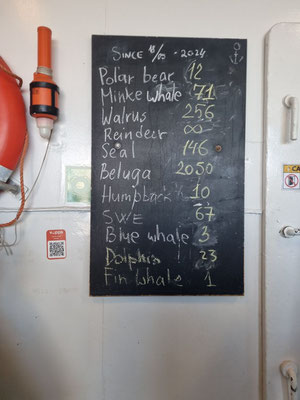 SINCE 18/05 - 2024
Polar bear 12
Minke whale 71
Walrus 256
Reindeer ∞
Seal 146
Beluga 2050
Humpback 10
SWE 67
Blue whale 3
Dolphin 23
Fin whale 1